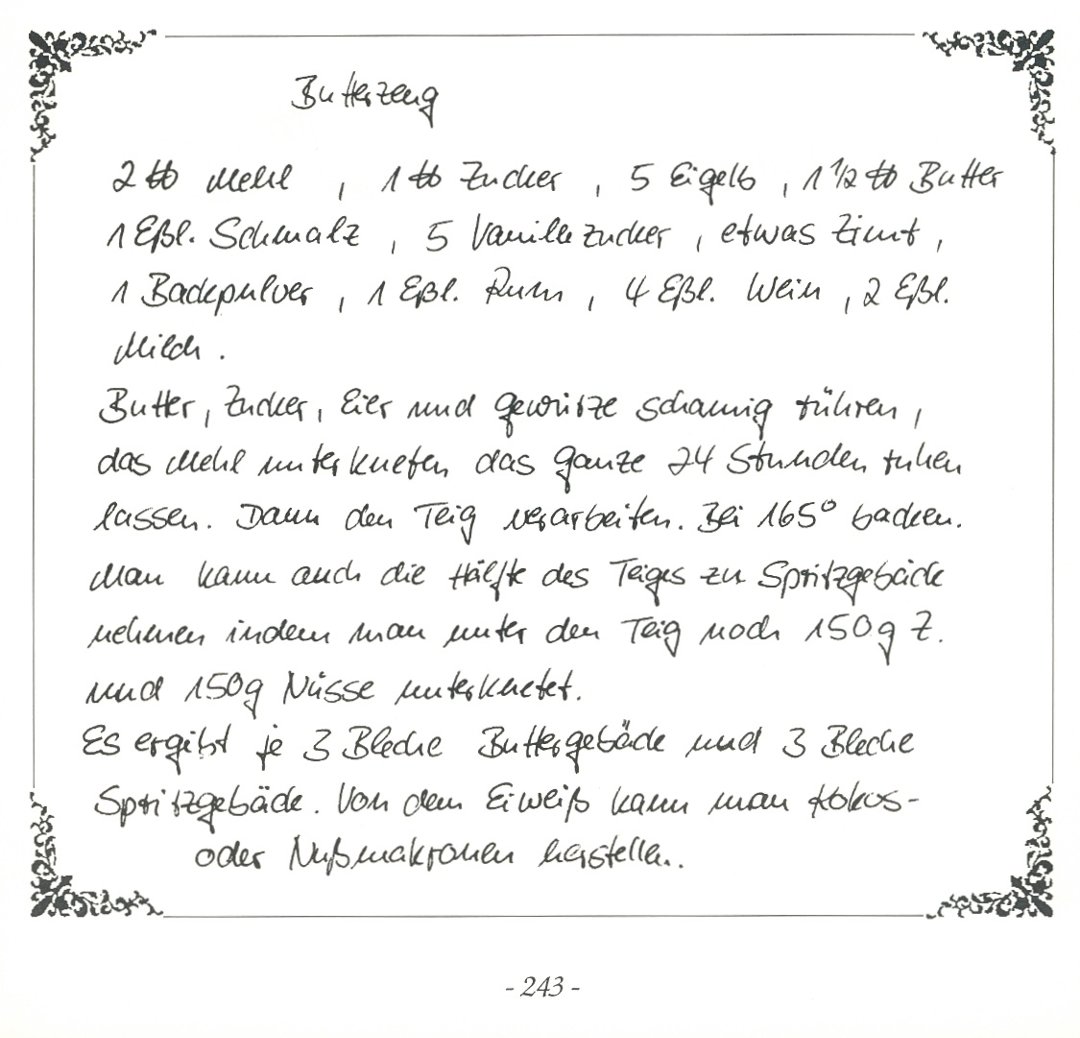 Butterzeug
2 ℔ Mehl , 1 ℔ Zucker , 5 Eigelb , 1 1/2 ℔ Butter
1 Eßl. Schmalz , 5 Vanillezucker , etwas Zimt ,
1 Backpulver , 1 Eßl. Rum , 4 Eßl. Wein , 2 Eßl.
Milch .
Butter, Zucker, Eier und Gewürze schaumig rühren,
das Mehl unterkneten das ganze 24 Stunden ruhen
lassen. Dann den Teig verarbeiten. Bei 165° backen.
Man kann auch die Hälfte des Teiges zu Spritzgebäck
nehmen indem man unter den Teig noch 150g Z.
und 150g Nüsse unterknetet.
Es ergibt je 3 Bleche Buttergebäck und 3 Bleche
Spritzgebäck. Von dem Eiweiß kann man Kokos-
oder Nußmakronen herstellen.
- 243 -